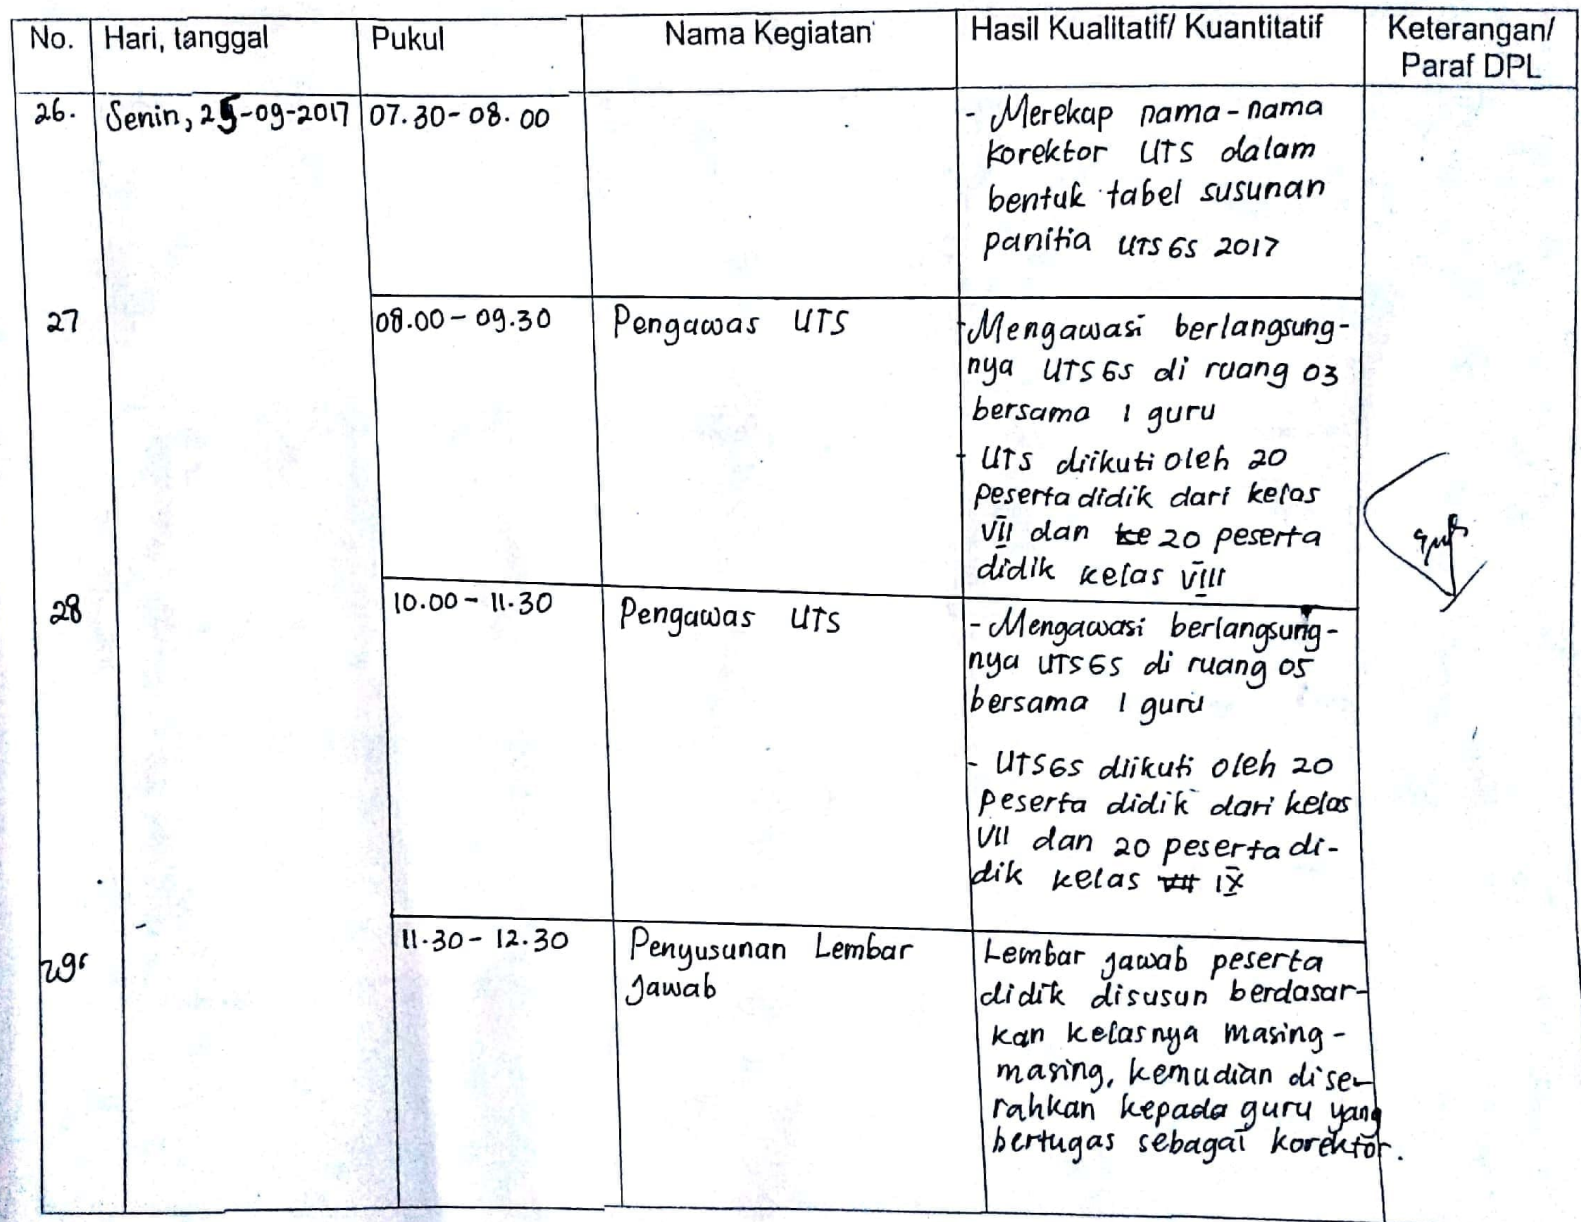 No. Hari, tanggal Pukul Nama Kegiatan Hasil Kualitatif/ Kuantitatif Keterangan/
Paraf DPL
26. Senin, 25-09-2017 07.30-08.00
- Merekap nama-nama
korektor UTS dalam
bentuk tabel susunan
panitia UTS GS 2017
27 08.00-09.30 Pengawas UTS
- Mengawasi berlangsung-
nya UTS GS di ruang 03
bersama 1 guru
- UTS diikuti oleh 20
peserta didik dari kelas
VII dan ke 20 peserta
didik kelas VIII
28 10.00-11.30 Pengawas UTS
- Mengawasi berlangsung-
nya UTS GS di ruang 05
bersama 1 guru
- UTS GS diikuti oleh 20
peserta didik dari kelas
VII dan 20 peserta di-
dik kelas VII IX
29. 11.30-12.30 Penyusunan Lembar
Jawab
Lembar jawab peserta
didik disusun berdasar-
kan kelasnya masing-
masing, kemudian dise-
rahkan kepada guru yang
bertugas sebagai korektor.